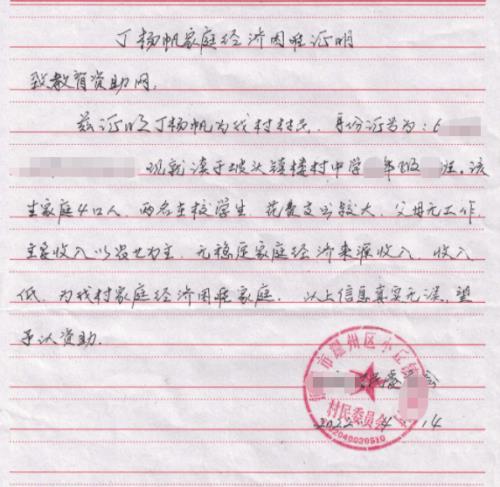 丁杨帆家庭经济困难证明
致教育资助网:
兹证明丁杨帆为我村村民,身份证号为:6
现就读于坡头镇楼村中学 年级 班。该
生家庭4口人,两名在校学生,花费支出较大,父母无工作,
主要收入以农业为主,无稳定家庭经济来源收入,收入
低,为我村家庭经济困难家庭,以上信息真实无误,望
予以资助.
市 州区小丘镇
村民委员会
2022 4 14